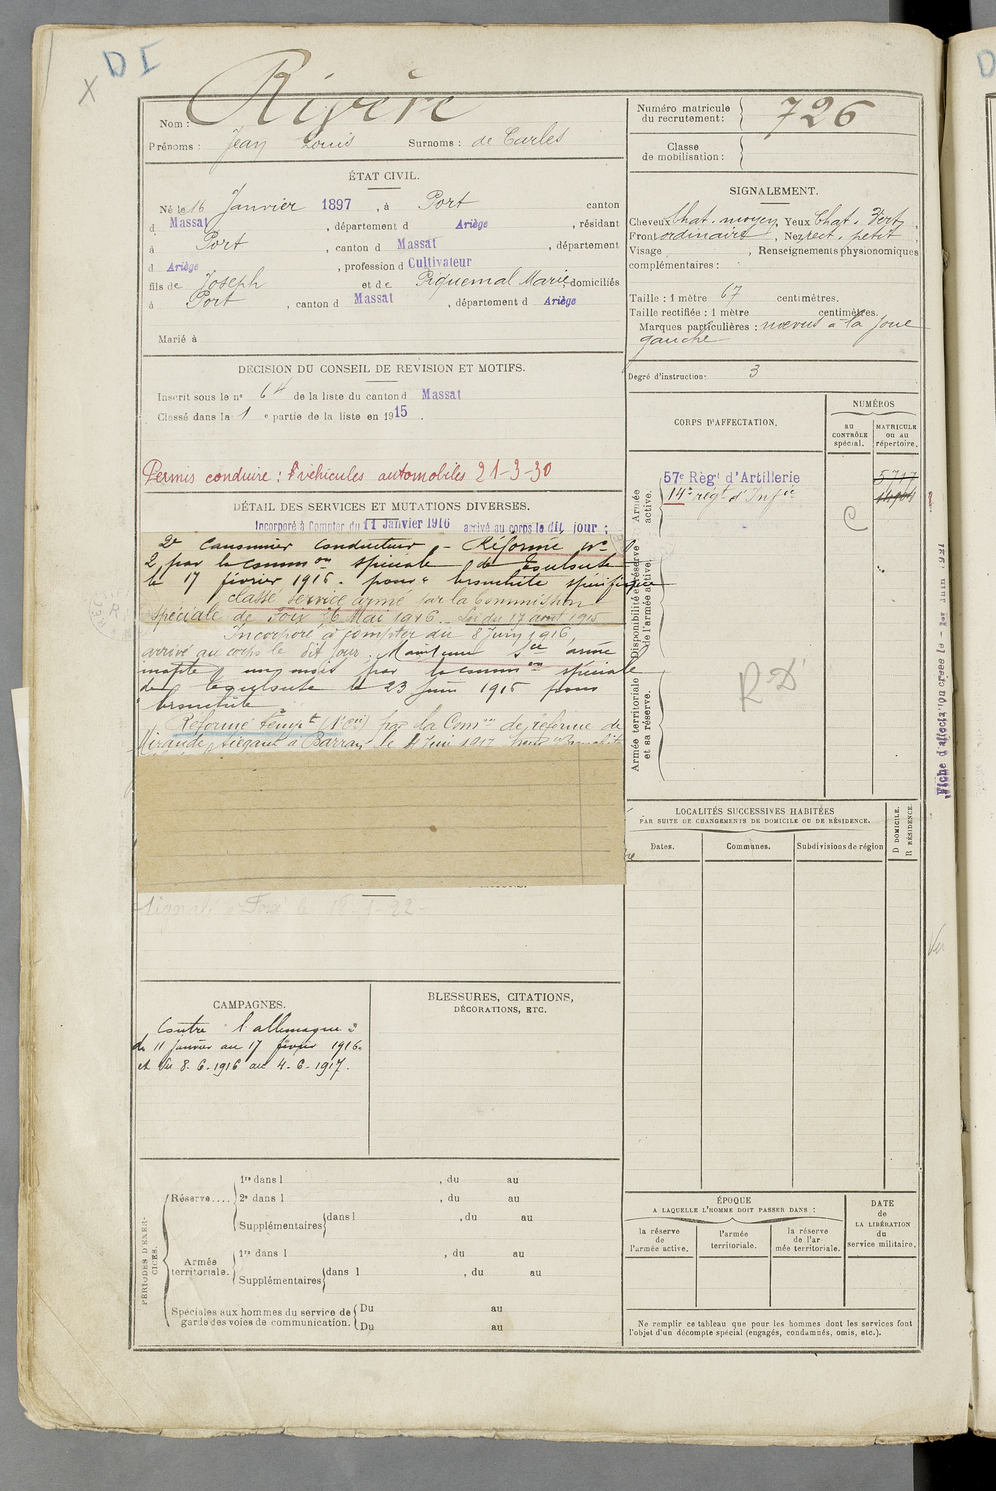 D I
X
Nom : Rivère
Prénoms : Jean Louis Surnoms : de Carles
ÉTAT CIVIL.
Né le 16 Janvier 1897, à Port canton
d Massat, département d Ariège, résidant
à Port, canton d Massat, département
d Ariège, profession d Cultivateur
fils de Joseph et de Piquemal Marie, domiciliés
à Port, canton d Massat, département d Ariège
Marié à
DÉCISION DU CONSEIL DE REVISION ET MOTIFS.
Inscrit sous le nº 64 de la liste du canton d Massat
Classé dans la 1 e partie de la liste en 1915.
Permis conduire : véhicules automobiles 21-3-30
DÉTAIL DES SERVICES ET MUTATIONS DIVERSES.
Incorporé à Compter du 11 Janvier 1916 arrivé au corps le dit jour ;
2e Canonnier conducteur - Réformé nº
2 par la common spéciale de Toulouse
le 17 février 1916. pour " bronchite spécifique
classé service armé par la Commission
spéciale de Foix 26 Mai 1916. Loi du 17 août 1915
Incorporé à compter du 8 Juin 1916,
arrivé au corps le dit jour. Maintenu Sce armé
inapte 1 un mois par la common spéciale
de le 23 Juin 1916 pour
bronchite
Réformé tempt (1°) par la Comon de réforme de
Mirande siégeant à Barran le 4 Juin 1917
Signalé à Foix le 18-1-22-
CAMPAGNES.
Contre l'allemagne :
du 11 Janvier au 17 février 1916.
et du 8-6-1916 au 4-6-1917.
BLESSURES, CITATIONS,
DÉCORATIONS, ETC.
PÉRIODES D'EXERCICES.
Réserve....
1re dans l , du au
2e dans l , du au
Supplémentaires dans l , du au
Armée territoriale.
1re dans l , du au
Supplémentaires dans l , du au
Spéciales aux hommes du service de
garde des voies de communication.
Du au
Du au
Numéro matricule
du recrutement : 726
Classe
de mobilisation :
SIGNALEMENT.
Cheveux Chat. moyen, Yeux Chat. Vert,
Front ordinaire, Nez rect. petit
Visage , Renseignements physionomiques
complémentaires :
Taille : 1 mètre 67 centimètres.
Taille rectifiée : 1 mètre centimètres.
Marques particulières : noevus à la joue
gauche
Degré d'instruction : 3
CORPS D'AFFECTATION.
NUMÉROS
au
CONTRÔLE
spécial.
MATRICULE
ou au
répertoire.
Armée
active.
57e Règt d'Artillerie 5717
14e régt d'Infie
C
Disponibilité et réserve
de l'armée active.
Armée territoriale
et sa réserve.
R D
LOCALITÉS SUCCESSIVES HABITÉES
PAR SUITE DE CHANGEMENTS DE DOMICILE OU DE RÉSIDENCE.
Dates.
Communes.
Subdivisions de région
D DOMICILE.
R RÉSIDENCE.
ÉPOQUE
A LAQUELLE L'HOMME DOIT PASSER DANS :
la réserve
de
l'armée active.
l'armée
territoriale.
la réserve
de l'ar
mée territoriale.
DATE
de
LA LIBÉRATION
du
service militaire.
Ne remplir ce tableau que pour les hommes dont les services font
l'objet d'un décompte spécial (engagés, condamnés, omis, etc.).
Fiche d'affectation créée le - 1er Juin 1921
D